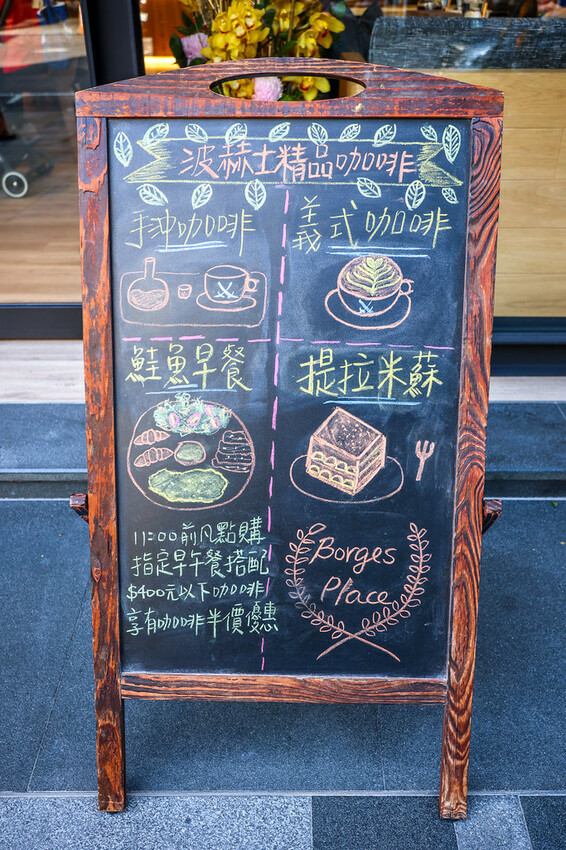 波赫士精品咖啡
手沖咖啡
義式咖啡
鮭魚早餐
提拉米蘇
11:00前凡點購
指定早午餐搭配
$400元以下咖啡
享有咖啡半價優惠
Borges
Place